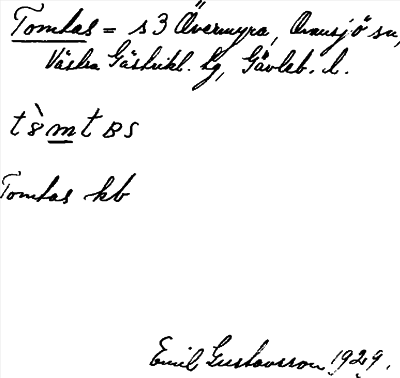 Tomtas = s 3 Övermyra, Ovansjö sn,
Västra Gästrikl. tg, Gävleb. l.
t è m t as
Tomtas kb
Emil Gustavsson 1929.